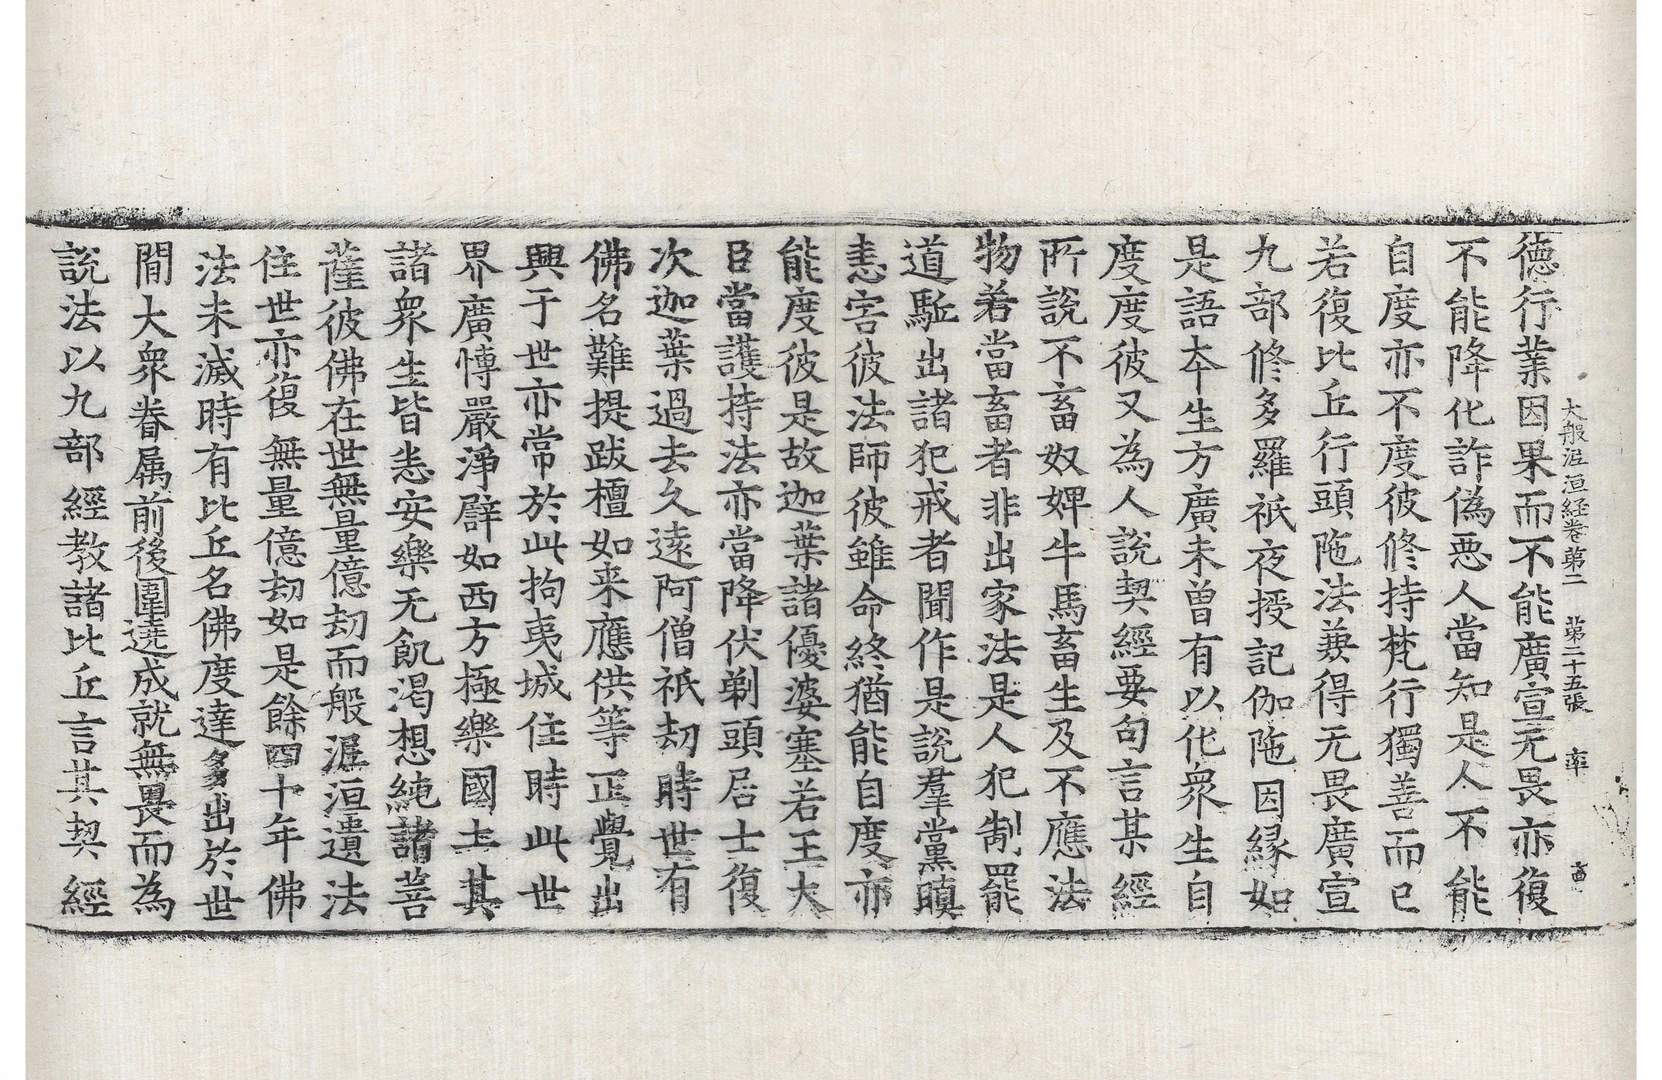 大般泥洹経卷第二　第二十五張　率　𠧧
德行業因果而不能廣宣无畏亦復
不能降化詐偽惡人當知是人不能
自度亦不度彼修持梵行獨善而已
若復比丘行頭陁法兼得无畏廣宣
九部修多羅祇夜授記伽陁因縁如
是語本生方廣未曽有以化衆生自
度度彼又為人說契經要句言某經
所說不畜奴婢牛馬畜生及不應法
物若當畜者非出家法是人犯制罷
道駈出諸犯戒者聞作是說羣黨瞋
恚害彼法師彼雖命終猶能自度亦
能度彼是故迦葉諸優婆塞若王大
臣當護持法亦當降伏剃頭居士復
次迦葉過去久遠阿僧祇劫時世有
佛名難提跋檀如来應供等正覺出
興于世亦常於此拘夷城住時此世
界廣愽嚴淨譬如西方極樂國土其
諸衆生皆悉安樂无飢渴想純諸菩
薩彼佛在世無量億劫而般泥洹遺法
住世亦復無量億劫如是餘四十年佛
法未滅時有比丘名佛度達多出於世
間大衆眷属前後圍遶成就無畏而為
說法以九部經教諸比丘言其契經